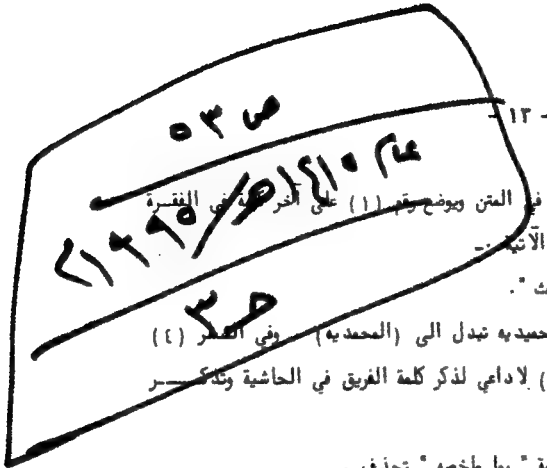 ص ٥٣
- ١٣ -
عام ١٤١٥ھ/١٩٩٥م
في المتن ويوضع رقم (١) على آخر في الفقرة
الآتية :-
ث ".
حميديه تبدل الى (المحمديه) وفي السطر (٤)
) لاداعي لذكر كلمة الفريق في الحاشية وتذكر
حـ ٣
تحذف